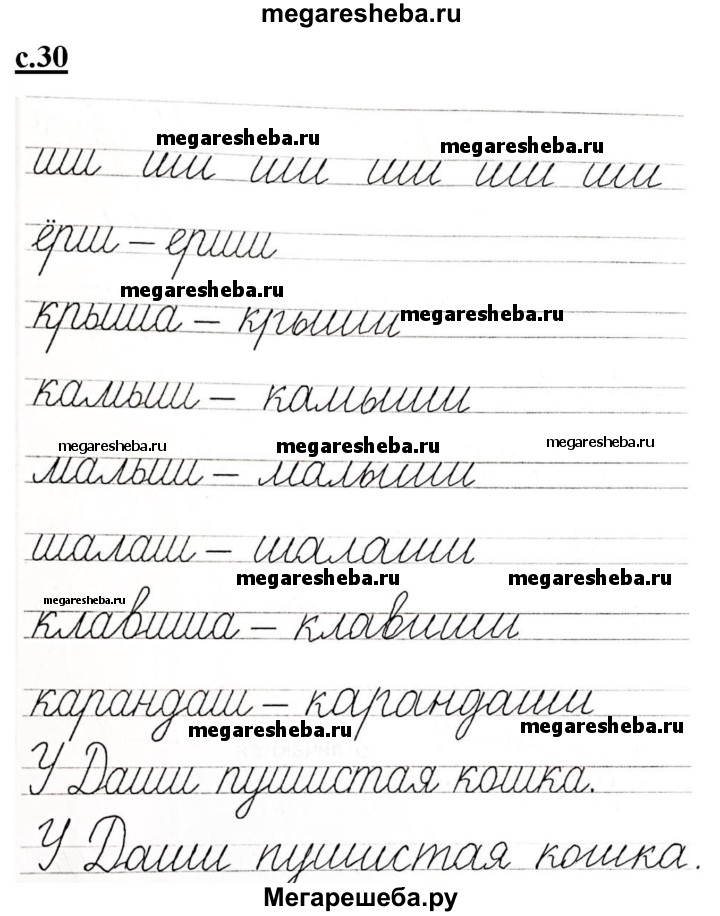 megaresheba.ru
с.30
megaresheba.ru megaresheba.ru
ши ши ши ши ши ши
ёрш – ерши
megaresheba.ru
крыша – крыши megaresheba.ru
камыш – камыши
megaresheba.ru megaresheba.ru megaresheba.ru
малыш – малыши
шалаш – шалаши
megaresheba.ru megaresheba.ru
megaresheba.ru
клавиша – клавиши
карандаш – карандаши
megaresheba.ru megaresheba.ru
У Даши пушистая кошка.
У Даши пушистая кошка.
Мегарешеба.ру